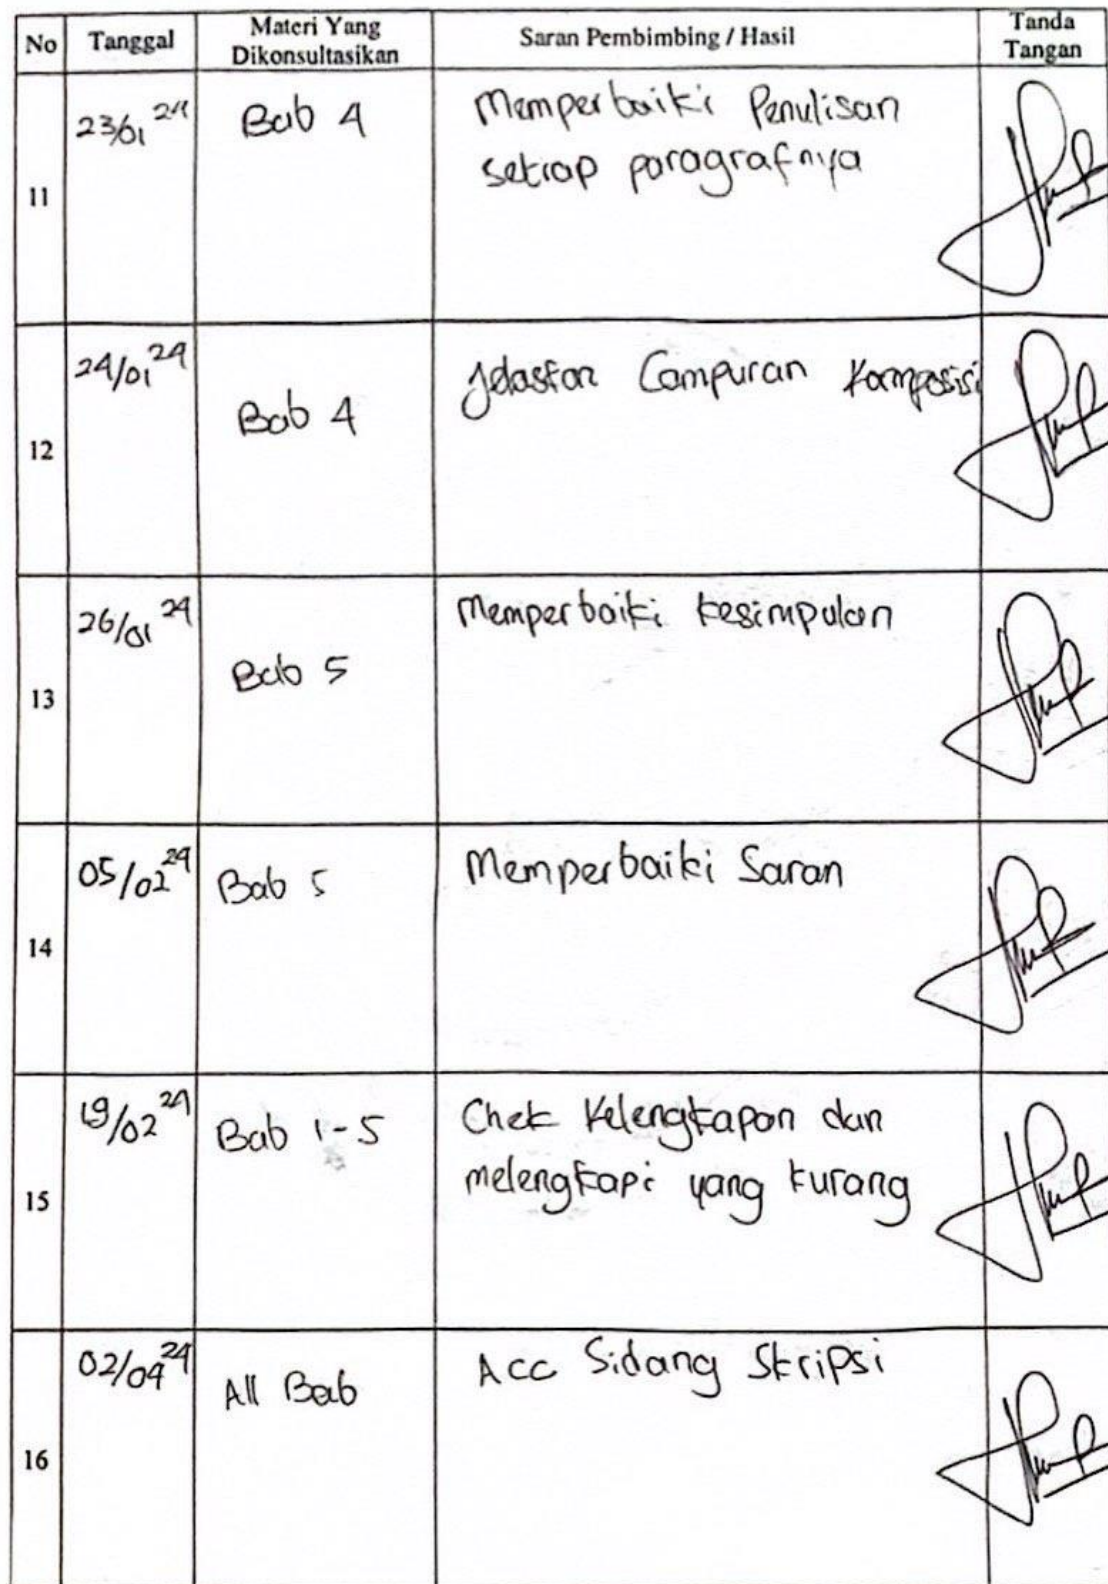 No Tanggal Materi Yang Dikonsultasikan Saran Pembimbing / Hasil Tanda Tangan
11 23/01 24 Bab 4 Memperbaiki Penulisan
setiap paragrafnya
12 24/01 24 Bab 4 Jelaskan Campuran Komposisi
13 26/01 24 Bab 5 Memperbaiki kesimpulan
14 05/02 24 Bab 5 Memperbaiki Saran
15 19/02 24 Bab 1-5 Chek Kelengkapan dan
melengkapi yang kurang
16 02/04 24 All Bab Acc Sidang Skripsi